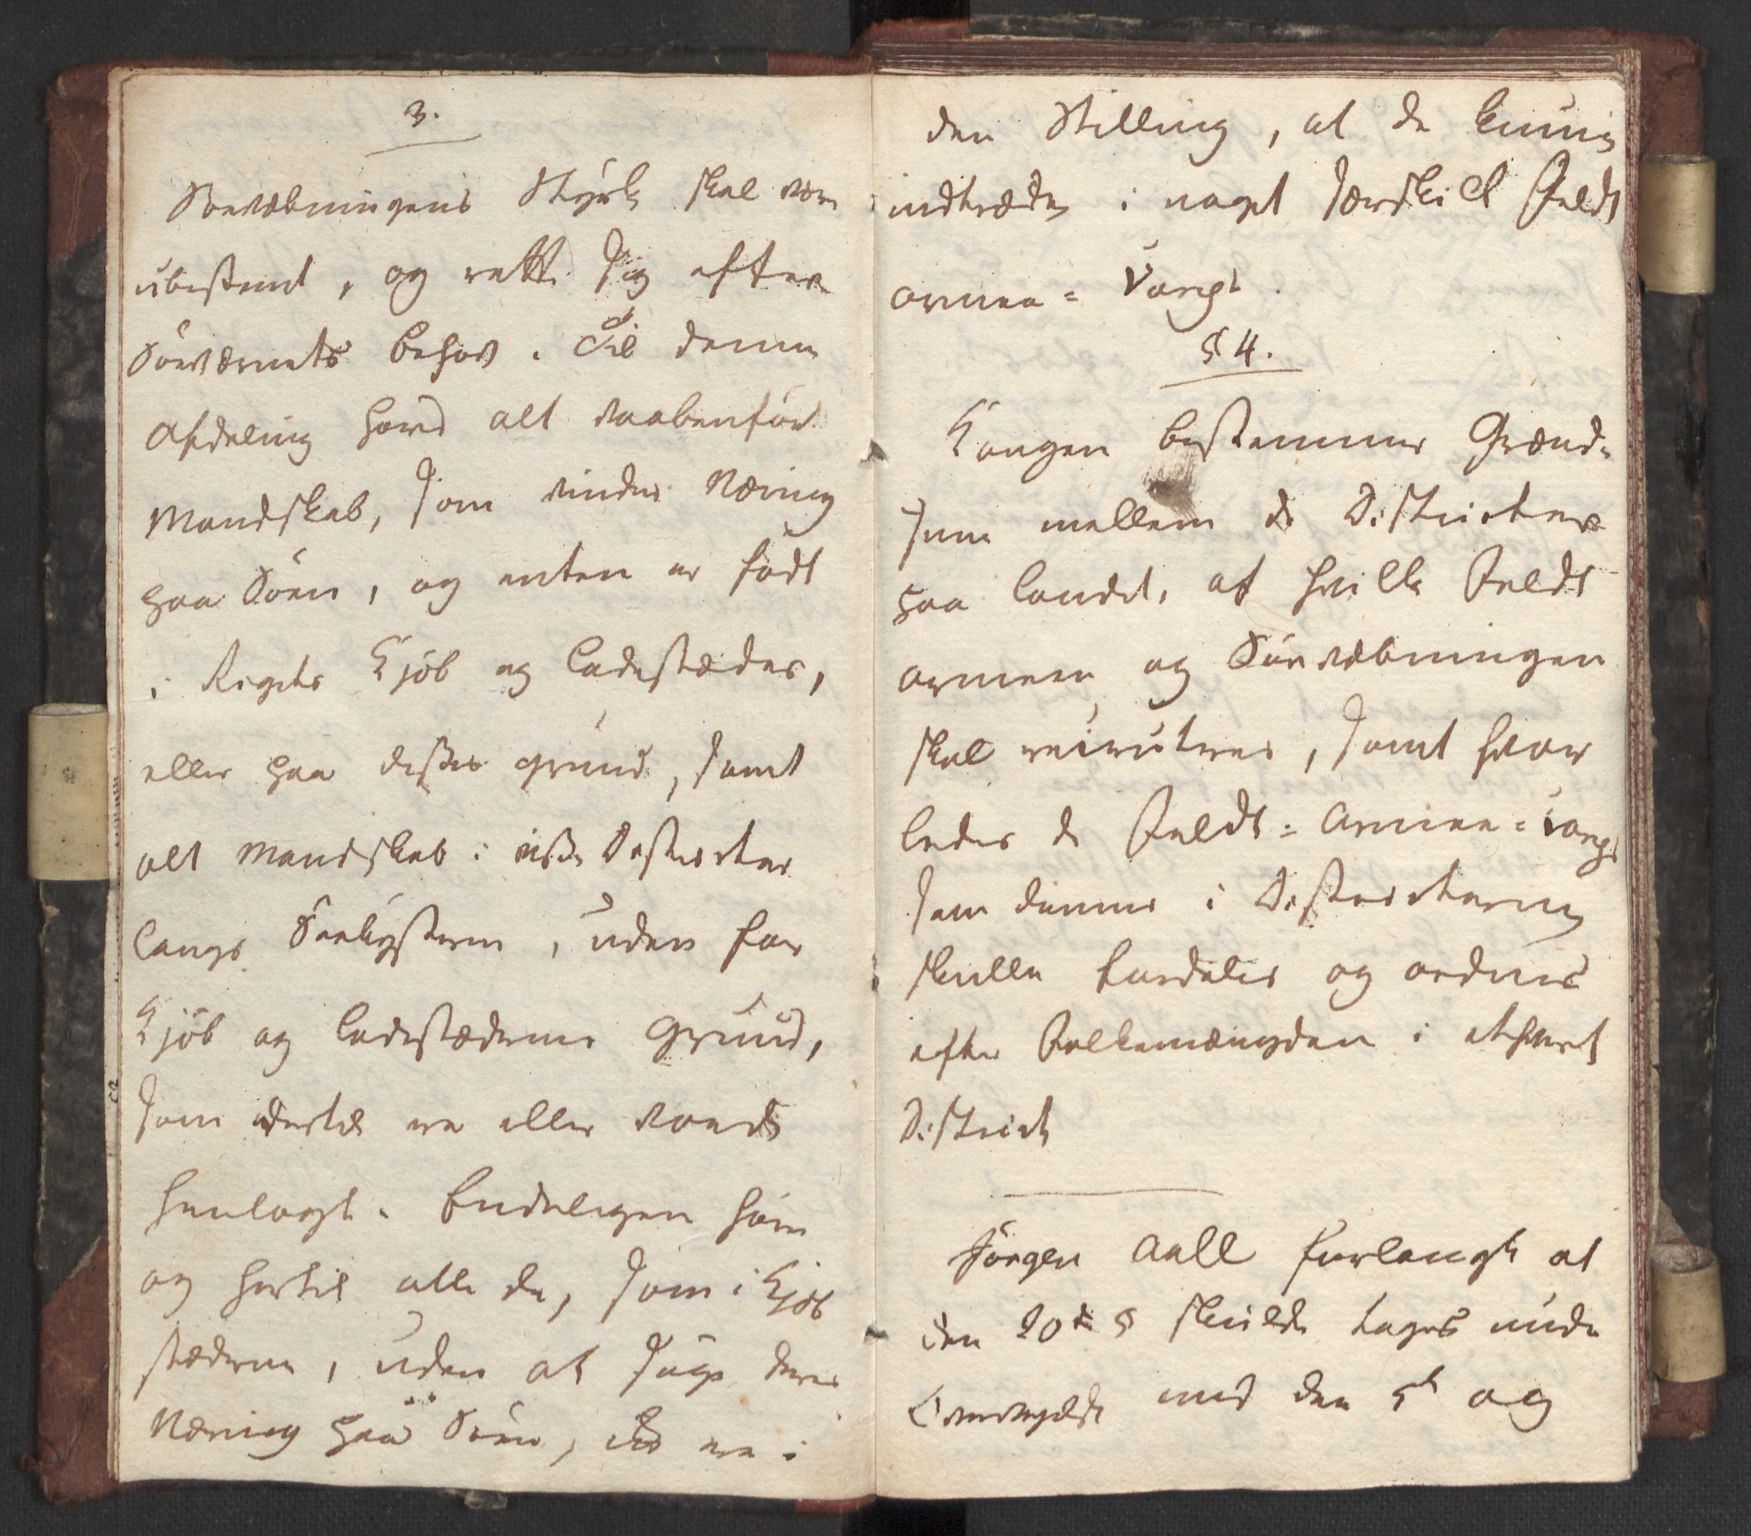 3.
Søevæbningens Styrke skal være
ubestemt, og rette sig efter
Søeværnets Behov. Til denne
Afdeling hører alt vaabenfør
Mandskab, som vinder Næring
paa Søen, og enten er født
i Rigets Kjøb og Ladestæder,
eller paa disses Grund, samt
alt Mandskab i visse Districter
langs Søekysten, uden for
Kjøb og Ladestædernes Grund,
som dertil ere eller vorde
henlagt. Endeligen høre
og hertil alle de, som i Kjøb
stæderne, uden at søge deres
Næring paa Søen, ere i
den Stilling, at de kunne
indtræde i noget særskilt Feldt
armee = Værgt.
§ 4.
Kongen bestemmer Grænd-
serne mellem de Districter
paa Landet, af hvilke Feldt
armeen og Søevæbningen
skal recruteres, samt hvor
ledes de Feldt = Armee = Værge
som dannes i Districterne
skulle fordeles og ordnes
efter Folkemængden i ethvert
District
Jørgen Aall forlangte at
den 20de § skulde tages under
Overveielse med den 5t og